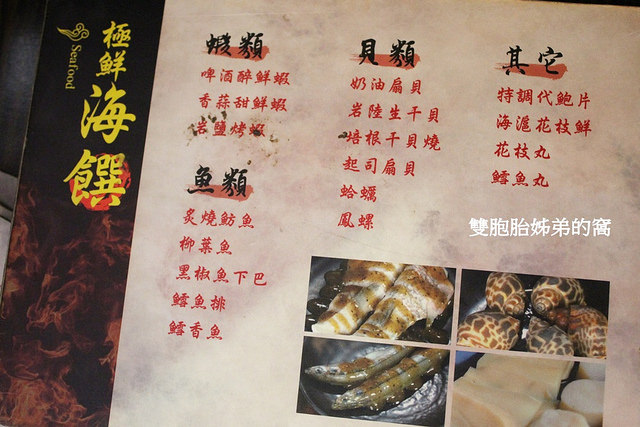 極鮮
海饌
Seafood
蝦類
啤酒醉鮮蝦
香蒜甜鮮蝦
岩鹽烤蝦
魚類
炙燒魴魚
柳葉魚
黑椒魚下巴
鱈魚排
鱈香魚
貝類
奶油扇貝
岩陸生干貝
培根干貝燒
起司扇貝
蛤蠣
鳳螺
其它
特調代鮑片
海滬花枝鮮
花枝丸
鱈魚丸
雙胞胎姊弟的窩